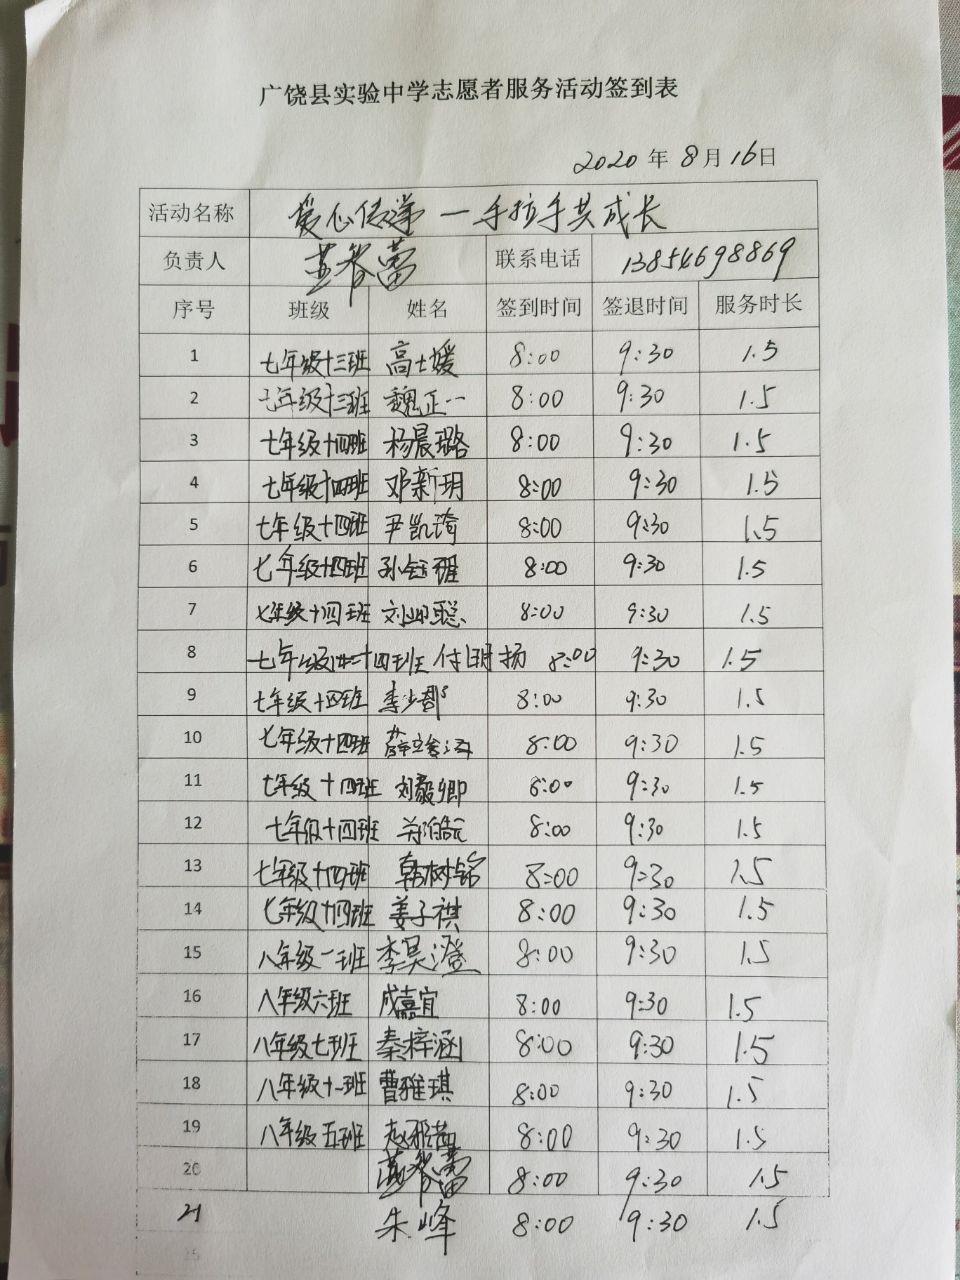 广饶县实验中学志愿者服务活动签到表
2020 年 8 月 16 日
活动名称 爱心传递 — 手拉手共成长
负责人 联系电话 13854698869
序号 班级 姓名 签到时间 签退时间 服务时长
1 七年级十三班 高士媛 8:00 9:30 1.5
2 七年级十三班 魏正一 8:00 9:30 1.5
3 七年级十四班 杨晨璐 8:00 9:30 1.5
4 七年级十四班 邓新玥 8:00 9:30 1.5
5 七年级十四班 尹凯琦 8:00 9:30 1.5
6 七年级十四班 8:00 9:30 1.5
7 七年级十四班 8:00 9:30 1.5
8 七年级十四班 付明扬 8:00 9:30 1.5
9 七年级十四班 李少郡 8:00 9:30 1.5
10 七年级十四班 8:00 9:30 1.5
11 七年级十四班 刘毅卿 8:00 9:30 1.5
12 七年级十四班 8:00 9:30 1.5
13 七年级十四班 韩树铭 8:00 9:30 1.5
14 七年级十四班 姜子祺 8:00 9:30 1.5
15 八年级一班 李昊澄 8:00 9:30 1.5
16 八年级六班 成嘉宜 8:00 9:30 1.5
17 八年级七班 秦梓涵 8:00 9:30 1.5
18 八年级十一班 曹雅琪 8:00 9:30 1.5
19 八年级五班 8:00 9:30 1.5
20 8:00 9:30 1.5
21 朱峰 8:00 9:30 1.5